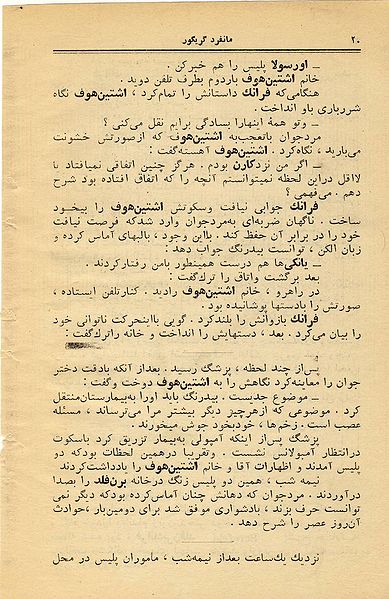 ۲۰ مانفرد گریگور
ـ اورسولا پلیس را هم خبرکن .
خانم اشتین‌هوف باردوم بطرف تلفن دوید .
هنگامی‌که فرانك داستانش را تمام‌کرد ، اشتین‌هوف نگاه
شررباری باو انداخت .
ـ وتو همهٔ اینهارا بسادگی برایم نقل می‌کنی ؟
مردجوان باتعجب‌به اشتین‌هوف که ازصورتش خشونت
می‌بارید ، نگاه‌کرد . اشتین‌هوف آهسته‌گفت :
ـ اگر من نزدکارن بودم . هرگز چنین اتفاقی نمیافتاد یا
لااقل دراین لحظه نمیتوانستم آنچه را که اتفاق افتاده بود شرح
دهم . می‌فهمی ؟
فرانك جوابی نیافت وسکوتش اشتین‌هوف را بیخود
ساخت . ناگهان ضربه‌ای به‌مردجوان وارد شدکه فرصت نیافت
خود را در برابر آن حفظ کند . بااین وجود ، بالبهای آماس کرده و
زبان الکن ، توانست بیدرنگ جواب دهد :
ـ یانکی‌ها هم درست همینطور بامن رفتارکردند .
بعد برگشت واتاق را ترك‌گفت :
در راهرو ، خانم اشتین‌هوف رادید . کنارتلفن ایستاده ،
صورتش را بادستها پوشانیده بود .
فرانك بازوانش را بلندکرد . گویی بااینحرکت ناتوانی خود
را بیان می‌کرد . بعد ، دستهایش را انداخت و خانه راترك‌گفت :
پس‌از چند لحظه ، پزشگ رسید . بعداز آنکه بادقت دختر
جوان را معاینه‌کرد نگاهش را به اشتین‌هوف دوخت وگفت :
ـ موضوع جدیست . بیدرنگ باید اورا به‌بیمارستان‌منتقل
کرد . موضوعی که ازهرچیز دیگر بیشتر مرا می‌ترساند ، مسئله
عصب است . زخم‌ها ، خودبخود جوش میخورند .
پزشگ پس‌از اینکه آمپولی به‌بیمار تزریق کرد باسکوت
درانتظار آمبولانس نشست . وتقریبا درهمین لحظات بودکه دو
پلیس آمدند و اظهارات آقا و خانم اشتین‌هوف را یادداشت‌کردند
نیمه شب ، همین دو پلیس زنگ درخانه برن‌فلد را بصدا
درآوردند . مردجوان که دهانش چنان آماس‌کرده بودکه دیگر نمی
توانست حرف بزند ، بادشواری موفق شد برای دومین‌بار ، حوادث
آن‌روز عصر را شرح دهد .
نزدیك یك‌ساعت بعداز نیمه‌شب ، ماموران پلیس در محل